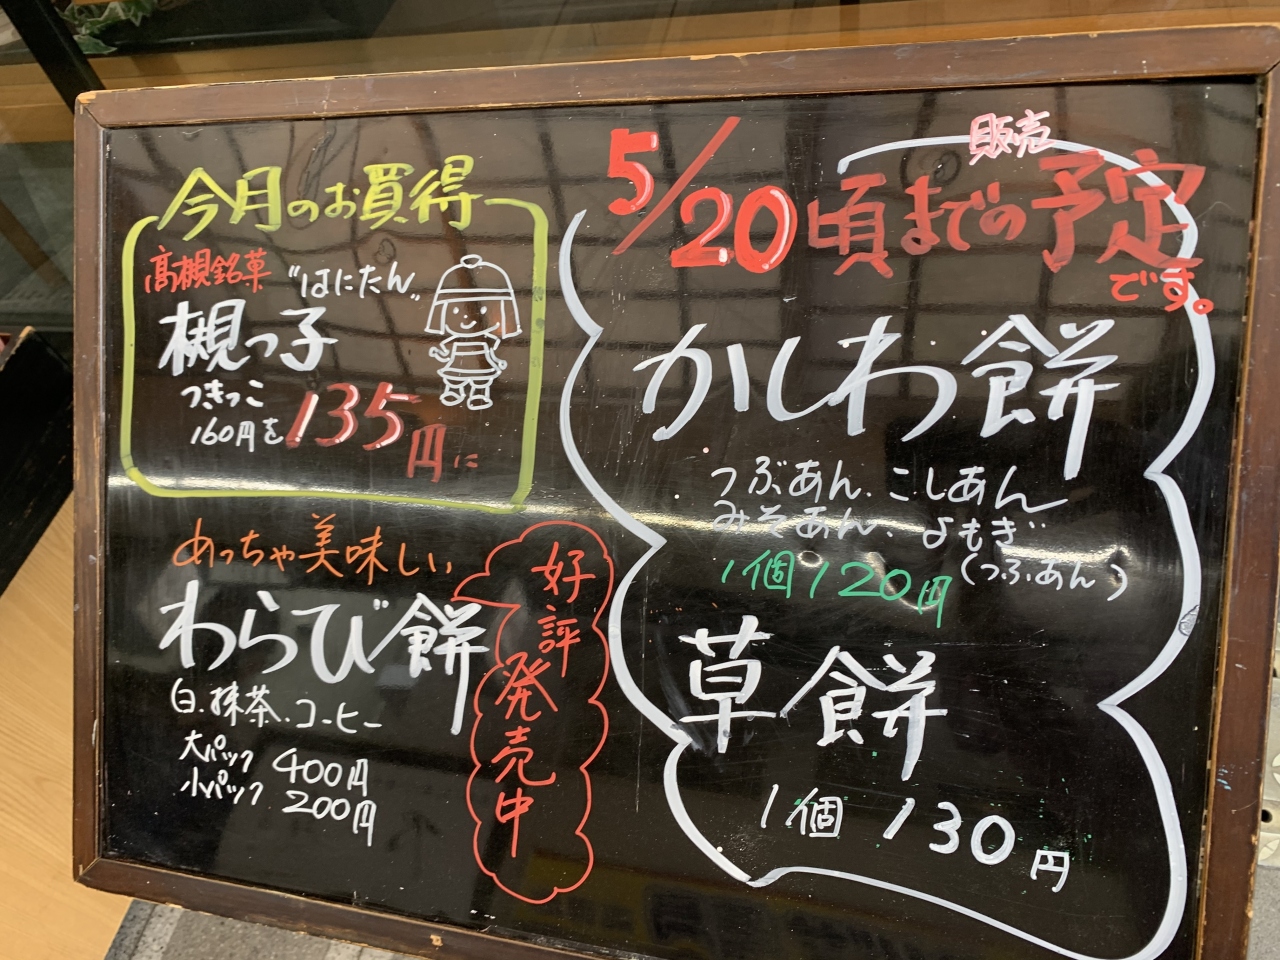 今月のお買得
髙槻銘菓 "はにたん"
槻っ子
つきっこ
160円を135円に
めっちゃ美味しい
わらび餅
白.抹茶.コーヒー
大パック 400円
小パック 200円
好評発売中
販売
5/20頃までの予定
です。
かしわ餅
つぶあん.こしあん
みそあん.よもぎ
(つぶあん)
1個120円
草餅
1個 130円